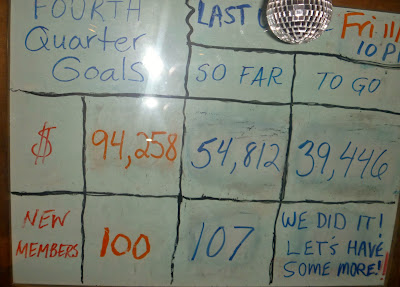 FOURTH
Quarter
Goals
LAST
Fri 11/
10 P
SO FAR
TO GO
$
94,258
54,812
39,446
NEW
MEMBERS
100
107
WE DID IT!
LET'S HAVE
SOME MORE!!